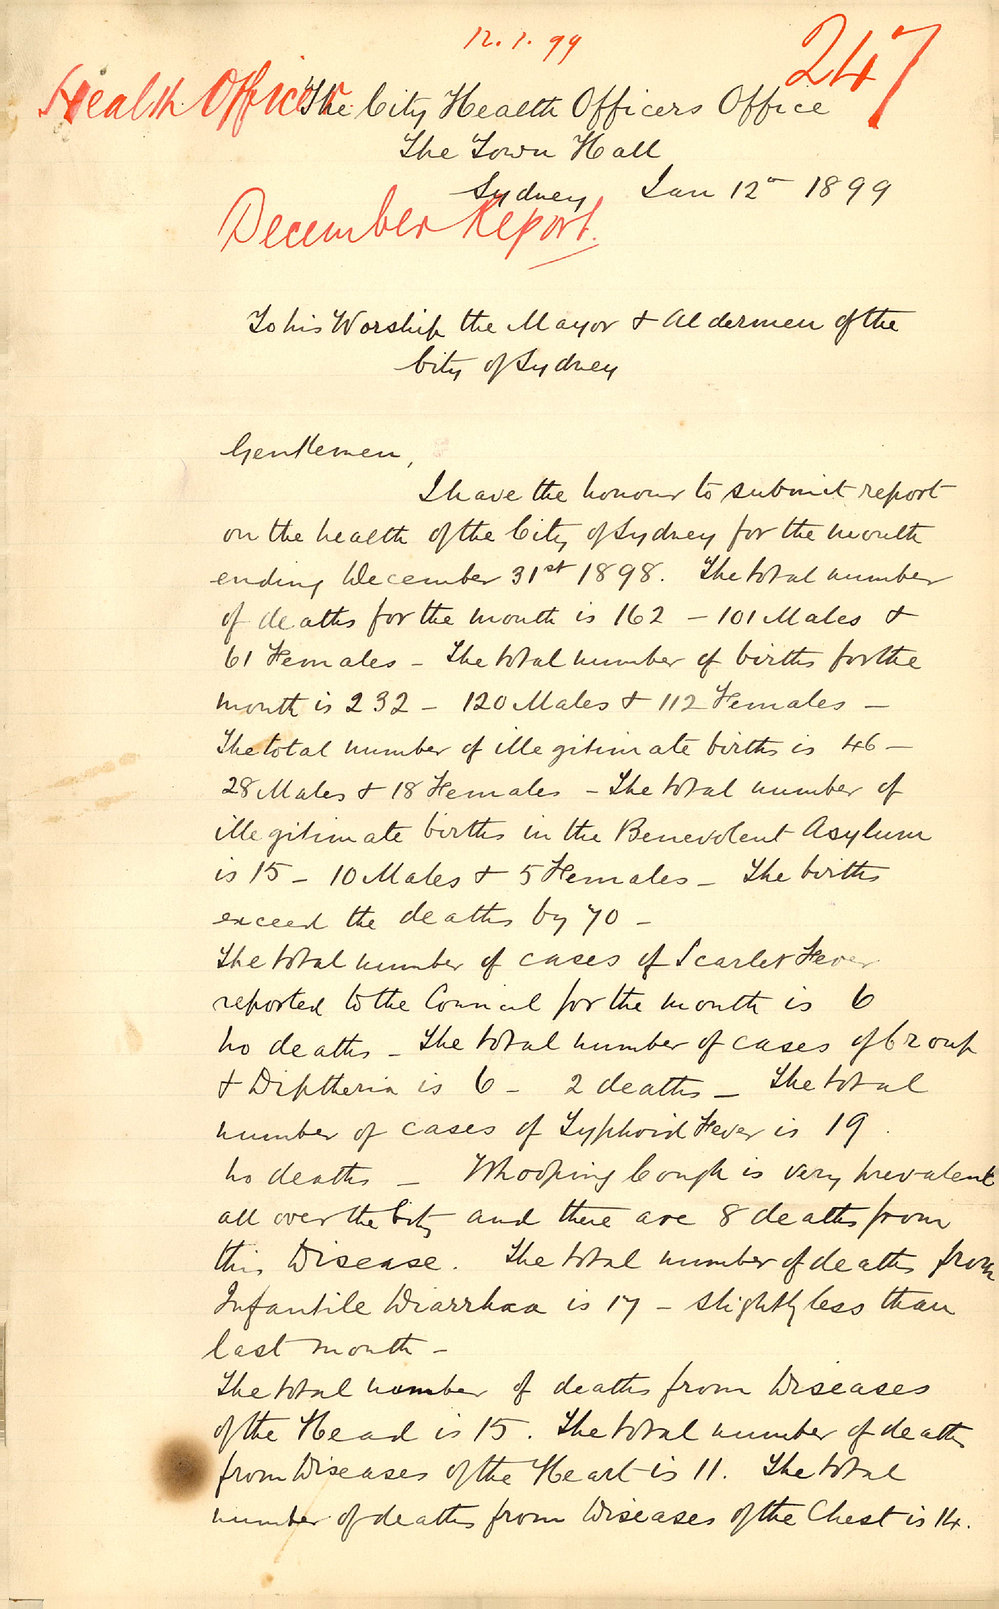 12.1.99
247
Health Officer
The City Health Officers Office
The Town Hall
Sydney Jan 12th 1899
December Report.
To his Worship the Mayor & Aldermen of the
City of Sydney
Gentlemen,
I have the honour to submit report
on the health of the City of Sydney for the month
ending December 31st 1898. The total number
of deaths for the month is 162 – 101 Males &
61 Females – The total number of births for the
month is 232 – 120 Males & 112 Females –
The total number of illegitimate births is 46 –
28 Males & 18 Females – The total number of
illegitimate births in the Benevolent Asylum
is 15 – 10 Males & 5 Females – The births
exceed the deaths by 70 –
The total number of cases of Scarlet Fever
reported to the Council for the month is 6
no deaths – The total number of cases of Croup
& Diptheria is 6 – 2 deaths – The total
number of cases of Typhoid Fever is 19.
no deaths – Whooping Cough is very prevalent
all over the City and there are 8 deaths from
this Disease. The total number of deaths from
Infantile Diarrhœa is 17 – slightly less than
last month –
The total number of deaths from Diseases
of the Head is 15. The total number of deaths
from Diseases of the Heart is 11. The total
number of deaths from Diseases of the Chest is 14.